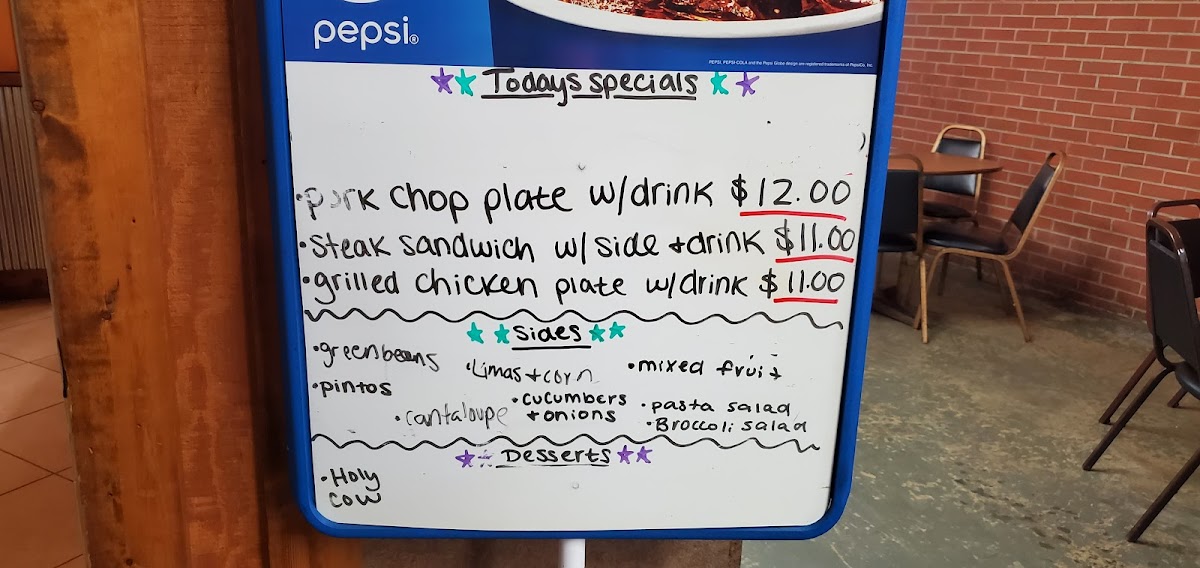 pepsi®
PEPSI, PEPSI-COLA and the Pepsi Globe design are registered trademarks of PepsiCo, Inc.
Todays specials
• pork chop plate w/drink $12.00
• steak sandwich w/ side + drink $11.00
• grilled chicken plate w/drink $11.00
Sides
• greenbeans
• Limas + corn
• mixed fruit
• pintos
• cucumbers
+ onions
• cantaloupe
• pasta salad
• Broccoli salad
Desserts
• Holy
cow